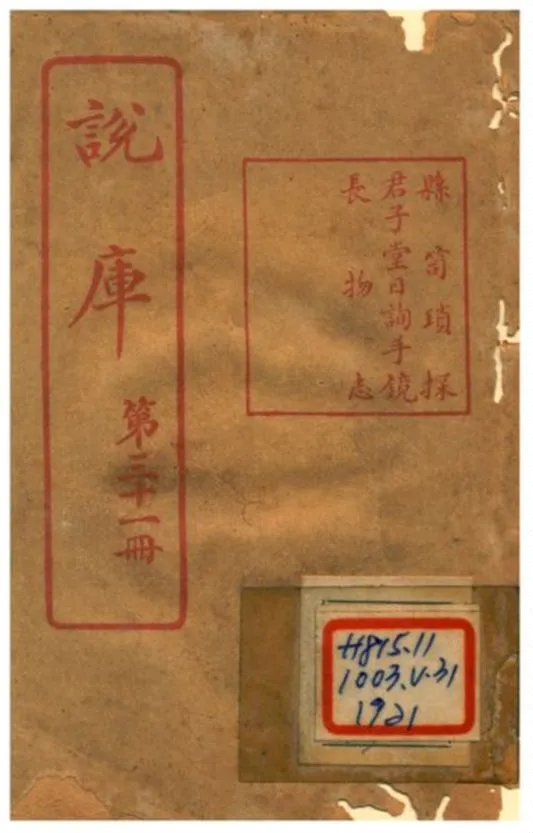 縣笥瑣探
君子堂日詢手鏡
長物志
說庫
第三十一冊
H895.11
1003.V.31
1921